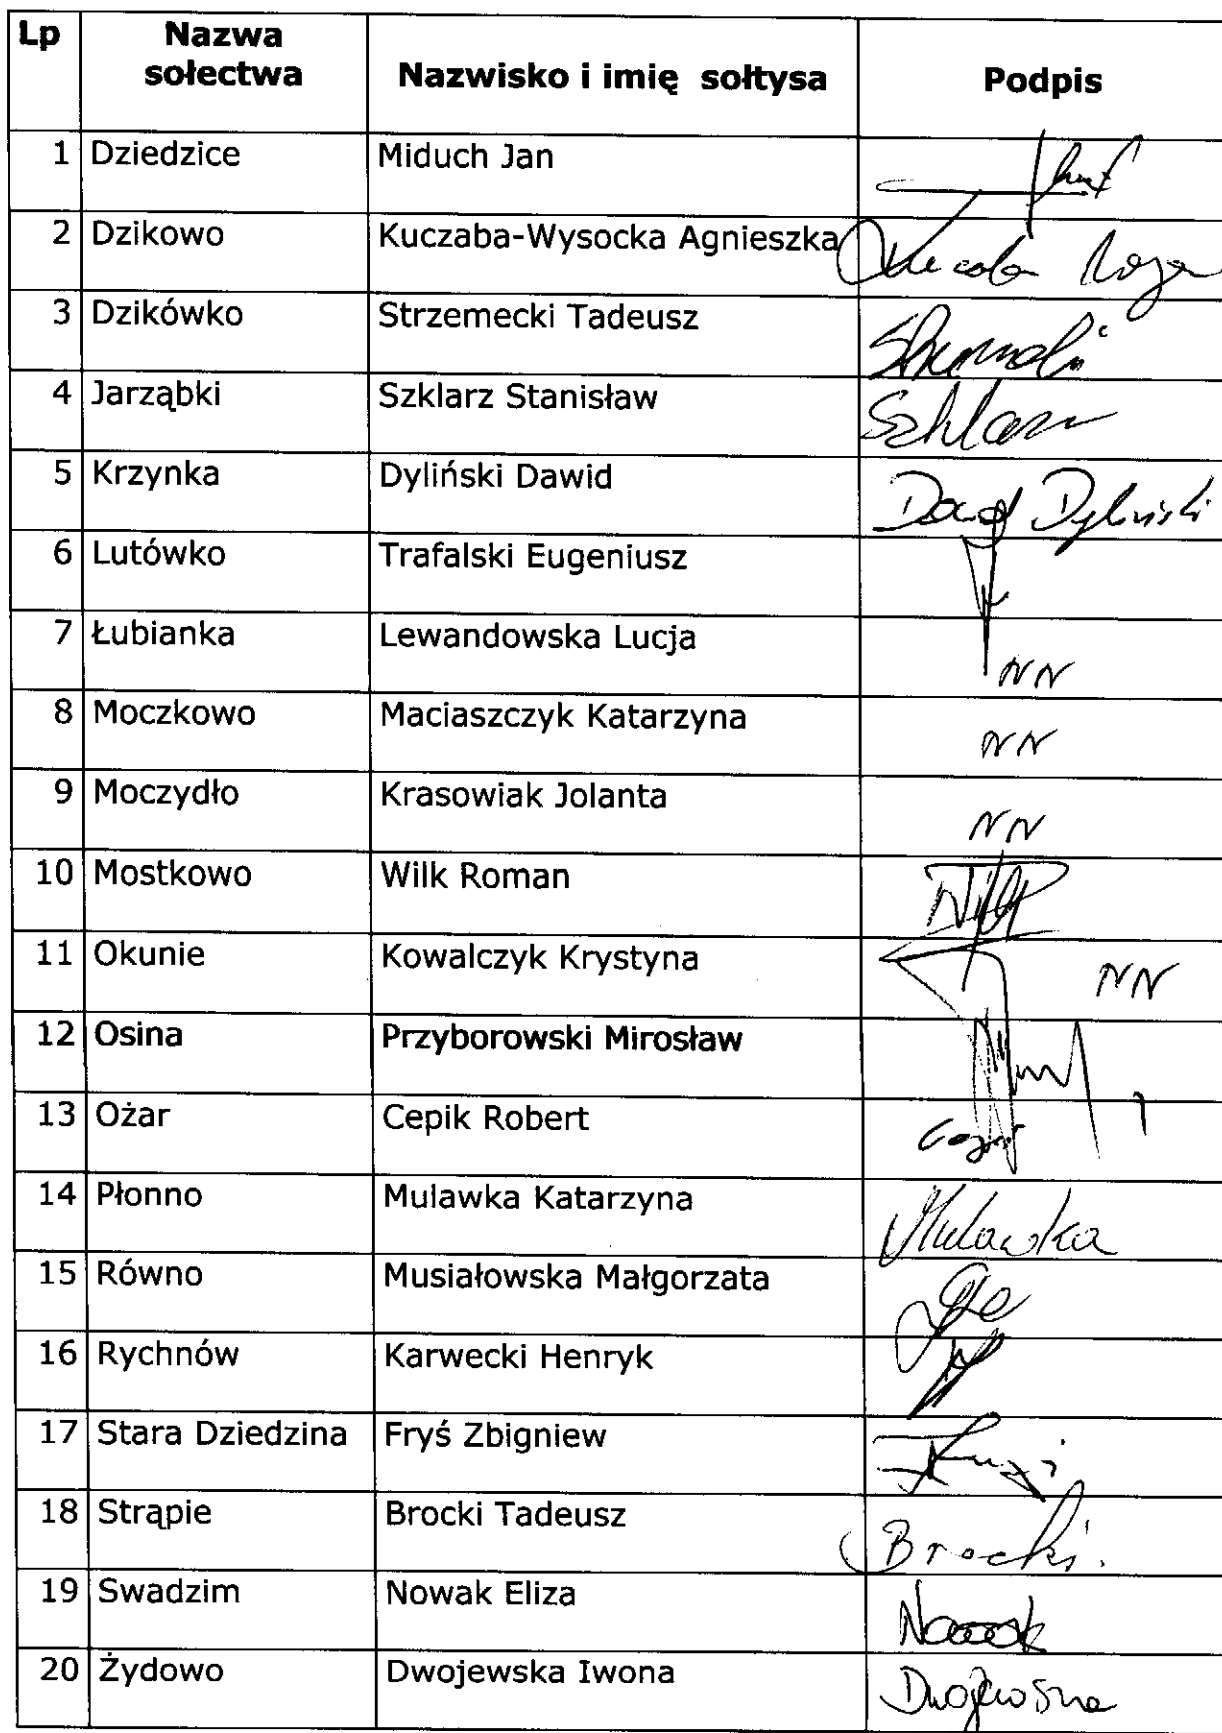 Lp Nazwa sołectwa Nazwisko i imię sołtysa Podpis
1 Dziedzice Miduch Jan
2 Dzikowo Kuczaba-Wysocka Agnieszka
3 Dzikówko Strzemecki Tadeusz
4 Jarząbki Szklarz Stanisław Szklarz
5 Krzynka Dyliński Dawid Dawid Dyliński
6 Lutówko Trafalski Eugeniusz
7 Łubianka Lewandowska Lucja NN
8 Moczkowo Maciaszczyk Katarzyna NN
9 Moczydło Krasowiak Jolanta NN
10 Mostkowo Wilk Roman
11 Okunie Kowalczyk Krystyna NN
12 Osina Przyborowski Mirosław
13 Ożar Cepik Robert
14 Płonno Mulawka Katarzyna Mulawka
15 Równo Musiałowska Małgorzata
16 Rychnów Karwecki Henryk
17 Stara Dziedzina Fryś Zbigniew
18 Strąpie Brocki Tadeusz Brocki
19 Swadzim Nowak Eliza Nowak
20 Żydowo Dwojewska Iwona